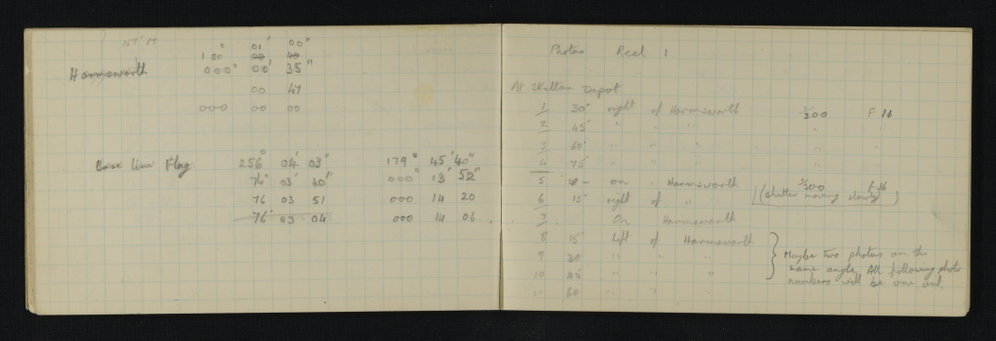 01' 00"
180° 00 40
Harmsworth 000° 00' 35"
00 47
000 00 00
Base line Flag 256° 04' 03" 179° 45' 40"
76° 03' 40" 000° 13' 52"
76 03 51 000 14 20
76 03 04 000 14 06
Photos Reel 1
At Skelton Depot
1 30° right of Harmsworth 1/300 F 11
2 45° " " " " "
3 60° " " " " "
4 75° " " " " "
5 on Harmsworth 1/300 F 16
6 15° right of " (shutter moving slowly)
7 On Harmsworth
8 15° Left of Harmsworth
9 30 " " " Maybe two photos on the
10 45 " " " same angle. All following photo
60 " " " numbers will be one out.